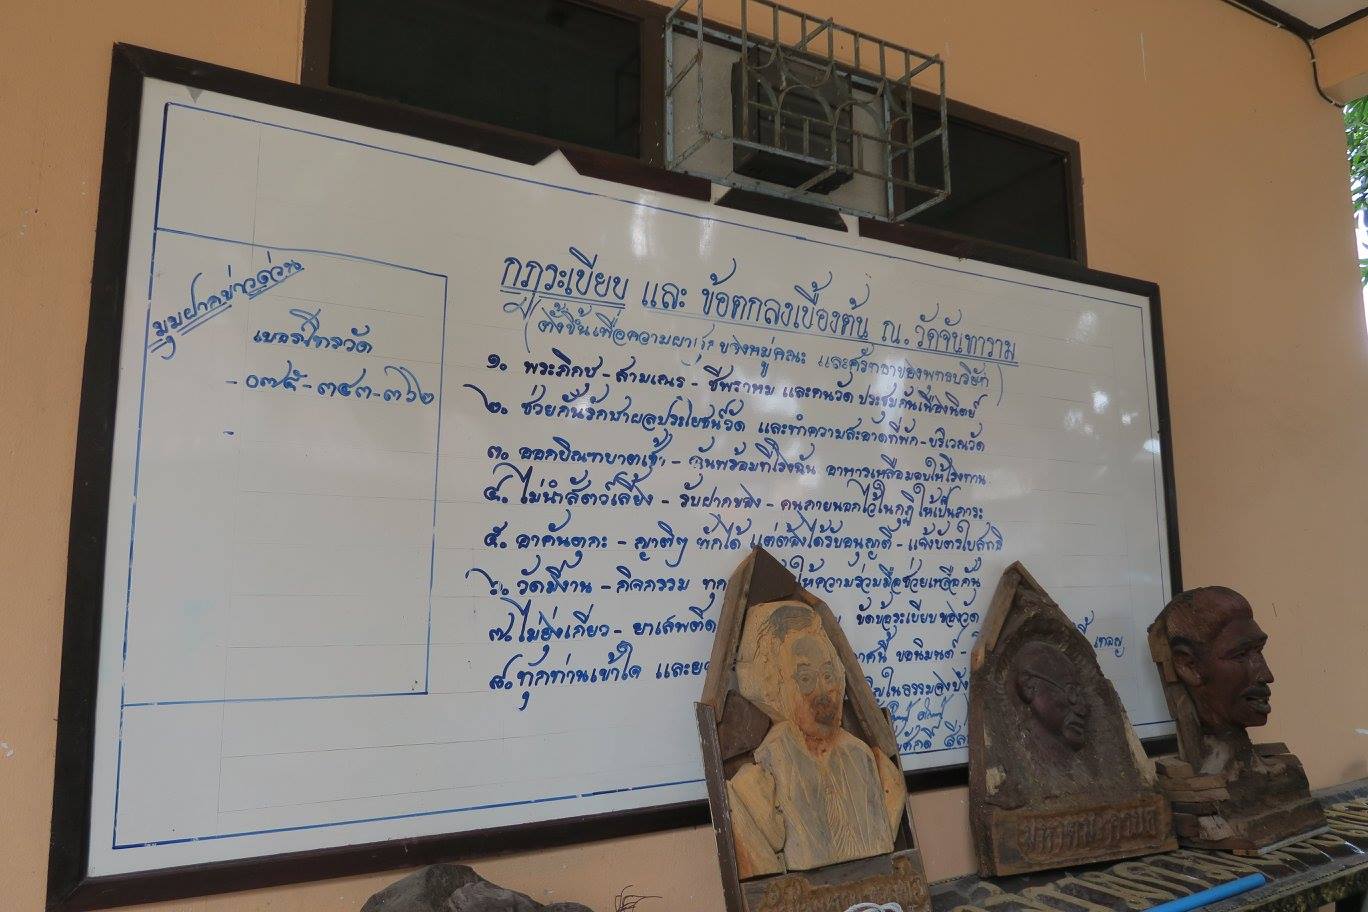 มุมฝากข่าวด่วน
เบอร์โทรวัด
- ๐๗๕-๓๔๓-๓๖๒
-
กฎระเบียบ และ ข้อตกลงเบื้องต้น ณ. วัดจันทาราม
(ตั้งขึ้นเพื่อความผาสุก ของหมู่คณะ และศรัทธาของพุทธบริษัท)
๑. พระภิกษุ - สามเณร - ชีพราหม และคนวัด ประชุมกันเนืองนิตย์
๒. ช่วยกันรักษาผลประโยชน์วัด และทำความสะอาดที่พัก - บริเวณวัด
๓. ออกบิณฑบาตเช้า - ฉันพร้อมที่โรงฉัน อาหารเหลือมอบให้โรงทาน
๔. ไม่นำสัตว์เลี้ยง - รับฝากของ - คนภายนอกไว้ในกุฏิให้เป็นภาระ
๕. อาคันตุกะ - ญาติๆ พักได้ แต่ต้องได้รับอนุญาติ - แจ้งบัตรใบสุทธิ
๖. วัดมีงาน - กิจกรรม ทุก ให้ความร่วมมือช่วยเหลือกัน
๗. ไม่ยุ่งเกี่ยว - ยาเสพติด ขัดข้อระเบียบของวัด
๘. ทุกท่านเข้าใจ และ ขอนิมนต์ -
ในธรรม